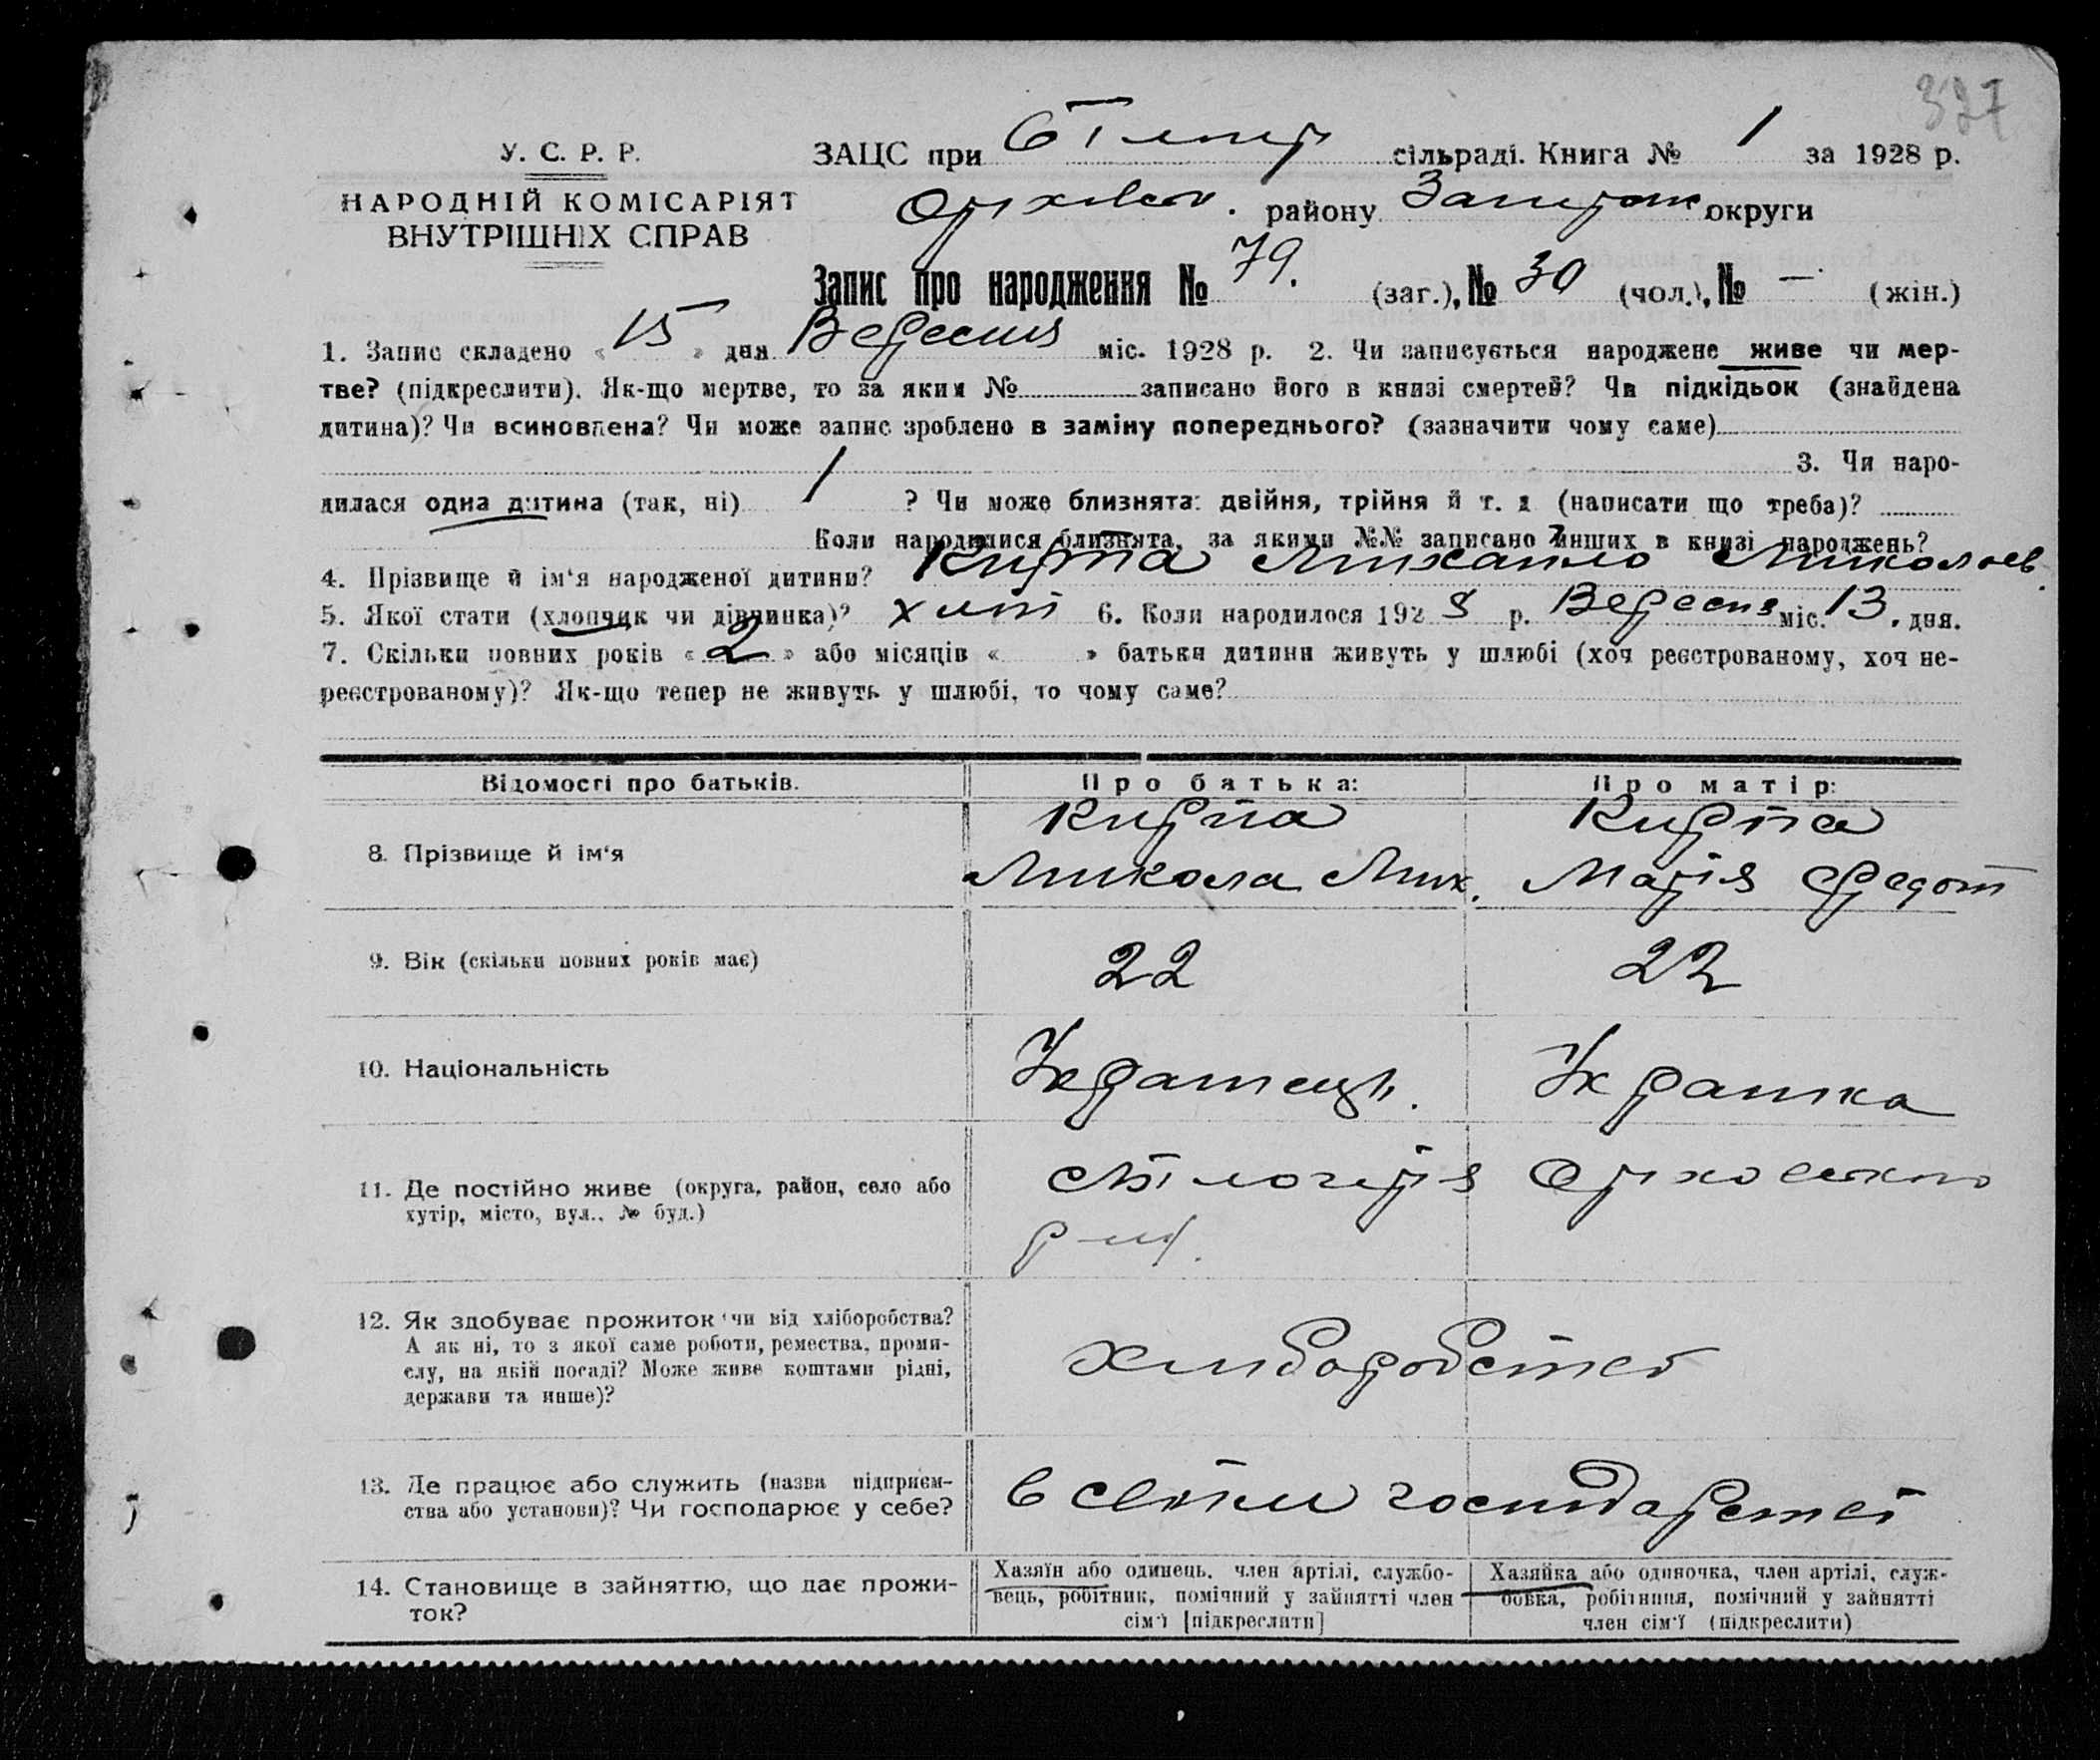 327
У. С. Р. Р.
НАРОДНІЙ КОМІСАРІЯТ
ВНУТРІШНІХ СПРАВ
ЗАЦС при сільраді. Книга № 1 за 1928 р.
району округи
Запис про народження № 79. (заг.), № 30 (чол.), № — (жін.)
1. Запис складено « 15 » дня Вересня міс. 1928 р. 2. Чи записується народжене живе чи мер-
тве? (підкреслити). Як-що мертве, то за яким № записано його в книзі смертей? Чи підкідьок (знайдена
дитина)? Чи всиновлена? Чи може запис зроблено в заміну попереднього? (зазначити чому саме)
3. Чи наро-
дилася одна дитина (так, ні) 1 ? Чи може близнята: двійня, трійня й т. д (написати що треба)?
Коли народилися близнята, за якими №№ записано инших в книзі народжень?
4. Прізвище й ім‘я народженої дитини? Кирпа Михайло Миколаєв.
5. Якої стати (хлопчик чи дівчинка)? 6. Коли народилося 1928 р. Вересня міс. 13. дня.
7. Скільки повних років « 2 » або місяців « » батьки дитини живуть у шлюбі (хоч реєстрованому, хоч не-
реєстрованому)? Як-що тепер не живуть у шлюбі, то чому саме?
Відомості про батьків.
Про батька:
Про матір:
8. Прізвище й ім‘я
Кирпа
Микола Мих.
Кирпа
Марія Федот
9. Вік (скільки повних років має)
22
22
10. Національність
Українець.
Українка
11. Де постійно живе (округа, район, село або
хутір, місто, вул., № буд.)
Білогіря Оріховського
12. Як здобуває прожиток чи від хліборобства?
А як ні, то з якої саме роботи, ремества, проми-
слу, на якій посаді? Може живе коштами рідні,
держави та инше)?
Хліборобство
13. Де працює або служить (назва підприєм-
ства або установи)? Чи господарює у себе?
в своїм господарстві
14. Становище в зайняттю, що дає прожи-
ток?
Хазяїн або одинець, член артілі, службо-
вець, робітник, помічний у зайнятті член
сім‘ї [підкреслити]
Хазяйка або одиночка, член артілі, служ-
бовка, робітниця, помічний у зайнятті
член сім‘ї (підкреслити)